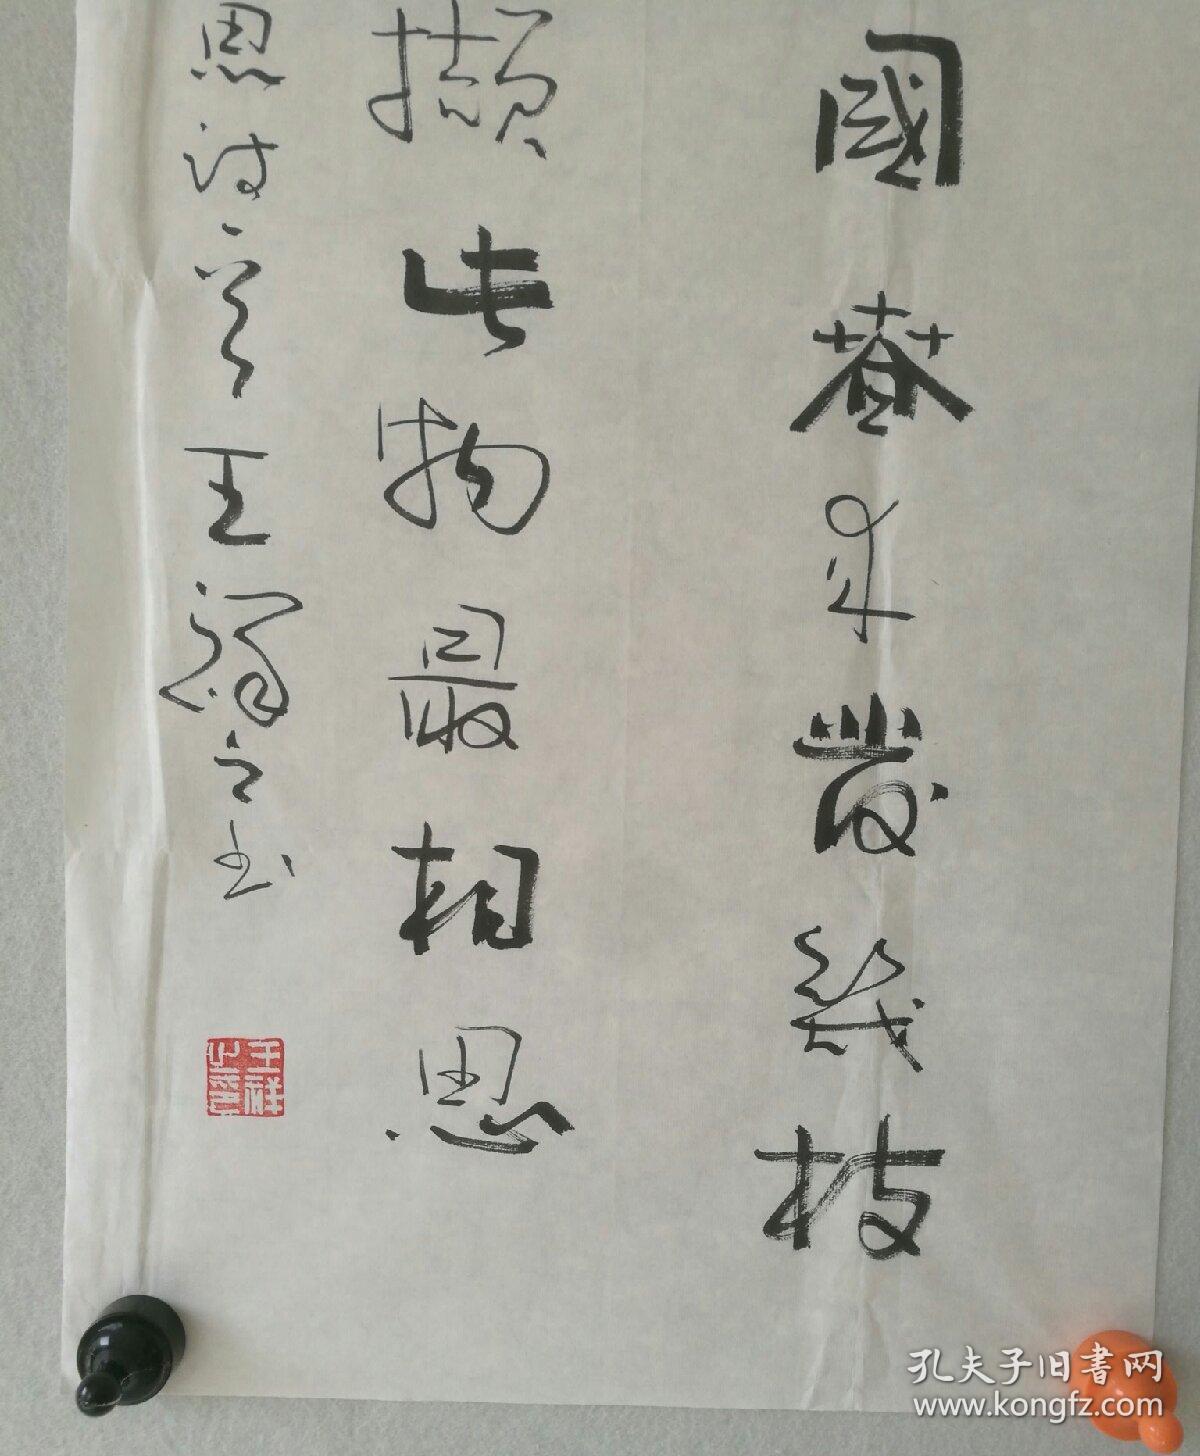 國春来發幾枝
擷此物最相思
思诗一首王祥之书
王祥之印
孔夫子旧書网
www.kongfz.com